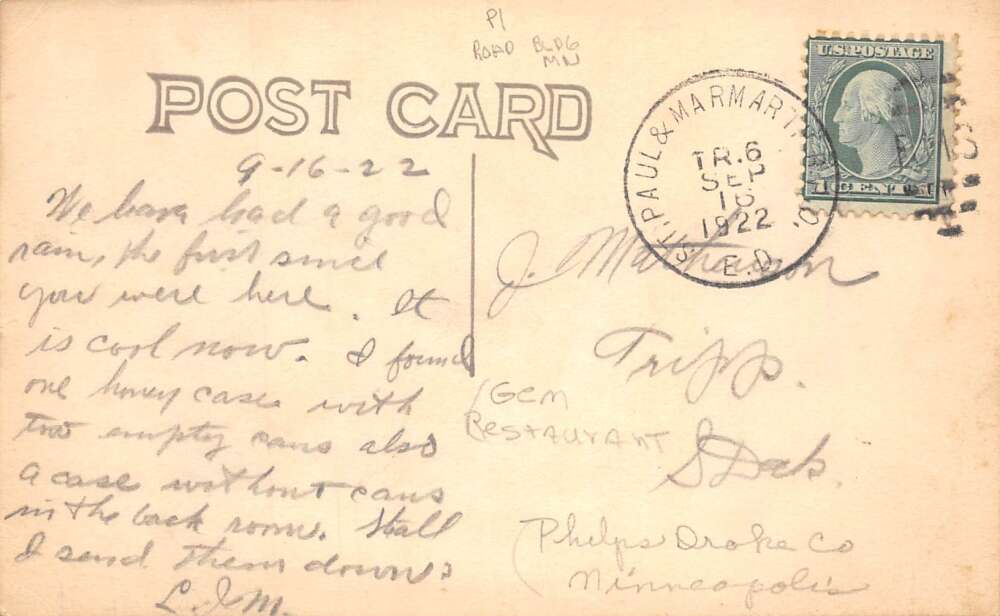 P1
ROAD BLDG
MN
POST CARD
U.S. POSTAGE
1 CENT 1
ST. PAUL & MARMARTH R.P.O.
TR. 6
SEP
16
1922
E.D.
9-16-22
We have had a good
rain, the first since
you were here. It
is cool now. I found
one honey case with
two empty cans also
a case without cans
in the back room. Shall
I send them down?
L.J.M.
J. Mathewson
Tripp.
S Dak.
(GEM
RESTAURANT
(Phelps Drake Co
Minneapolis)